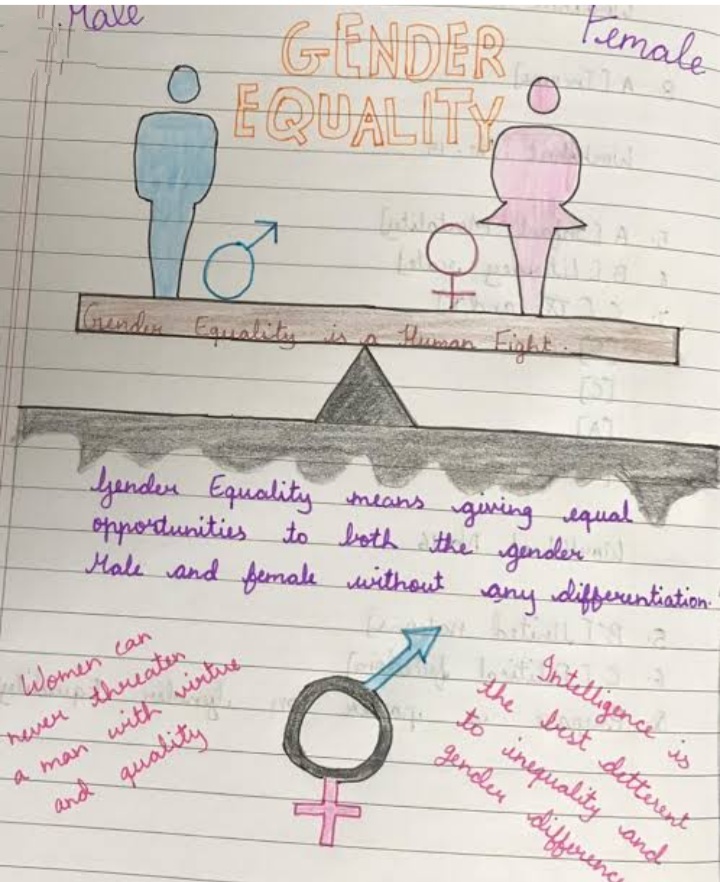 Male
Female
GENDER
EQUALITY
Gender Equality is a Human Fight.
Gender Equality means giving equal
opportunities to both the gender
Male and female without any differentiation.
Women can
never threaten
a man with virtue
and quality
Intelligence is
the best detterent
to inequality and
gender difference